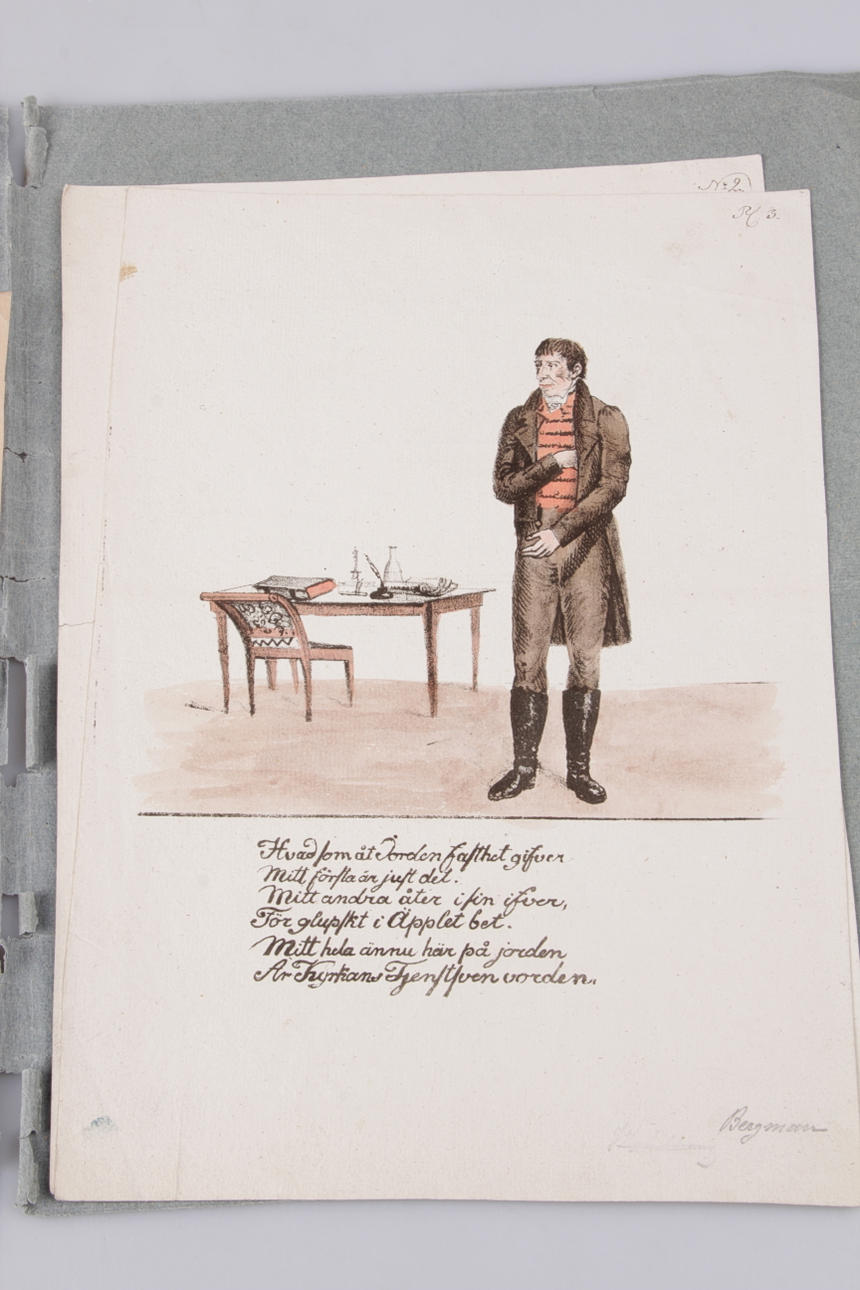 No 2.
No 3.
Hvad som åt Jorden fasthet gifver
Mitt första är just det.
Mitt andra åter i sin ifver,
För glupskt i Äpplet bet.
Mitt hela ännu här på jorden
Är Kyrkans Tjenstsven vorden.
Bergman